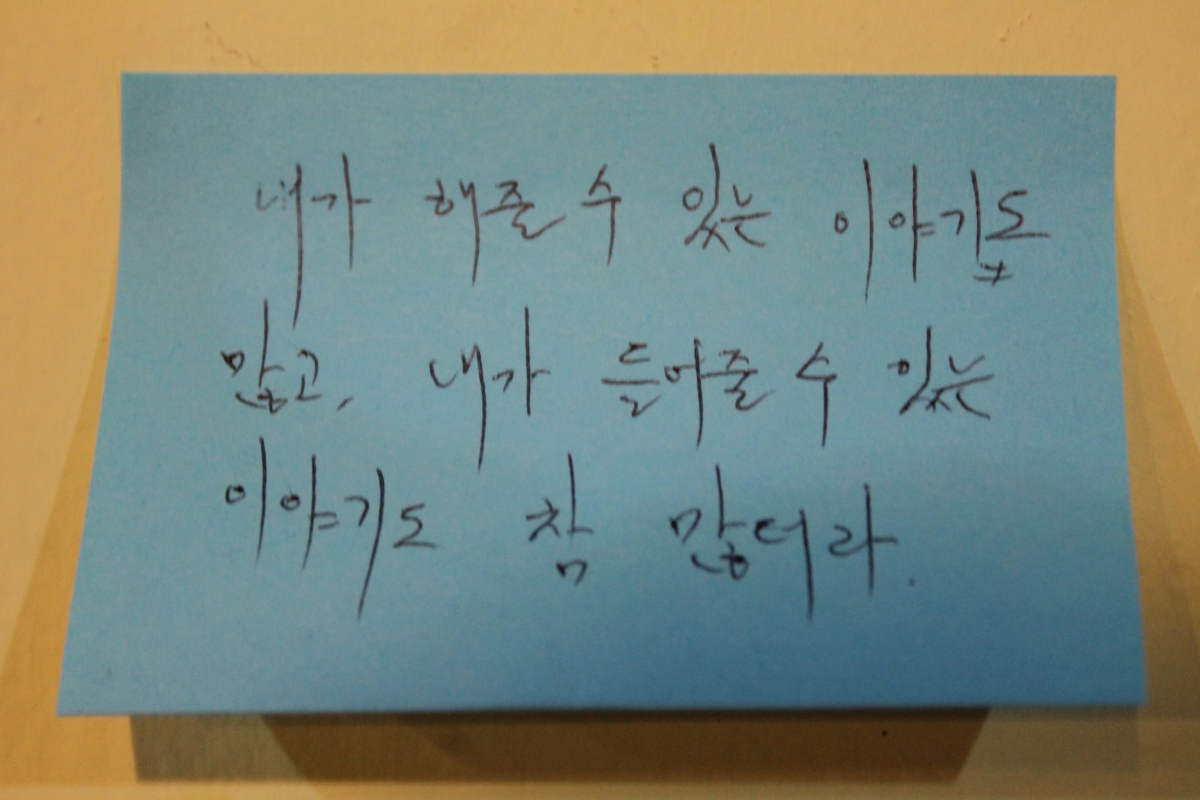 내가 해줄 수 있는 이야기도
많고, 내가 들어줄 수 있는
이야기도 참 많더라.